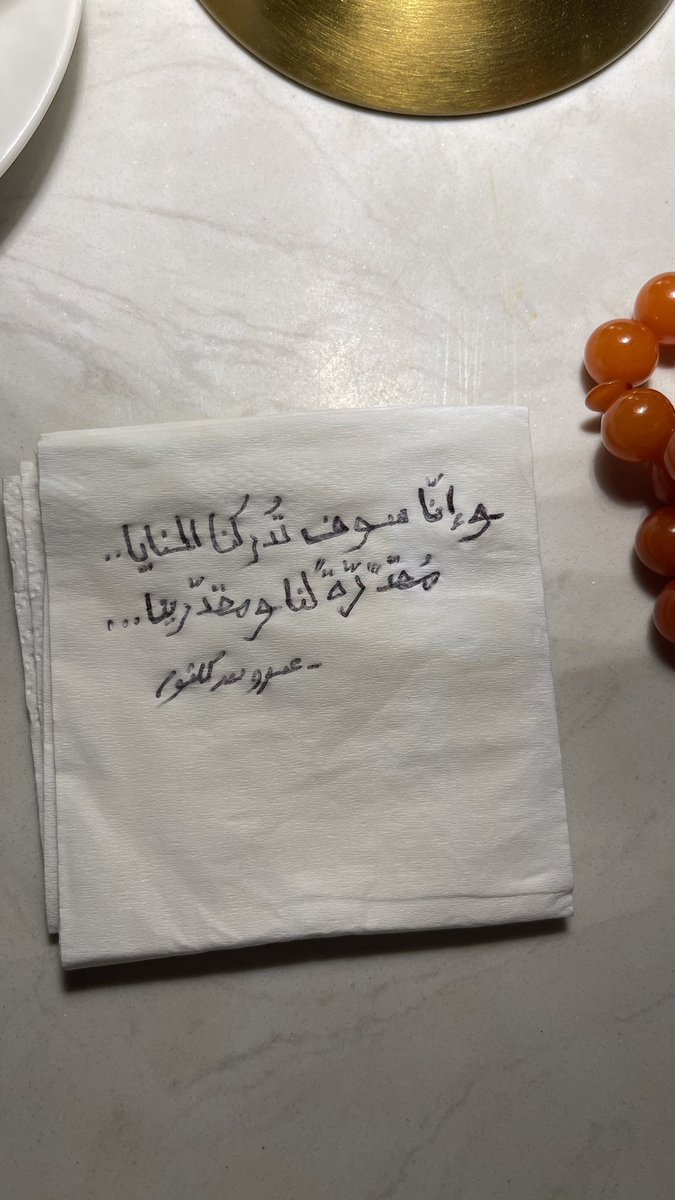 وإنّا سوف تُدركنا المنايا..
مُقدّرّةً لنا ومقدّرينا...
- عمرو بن كلثوم